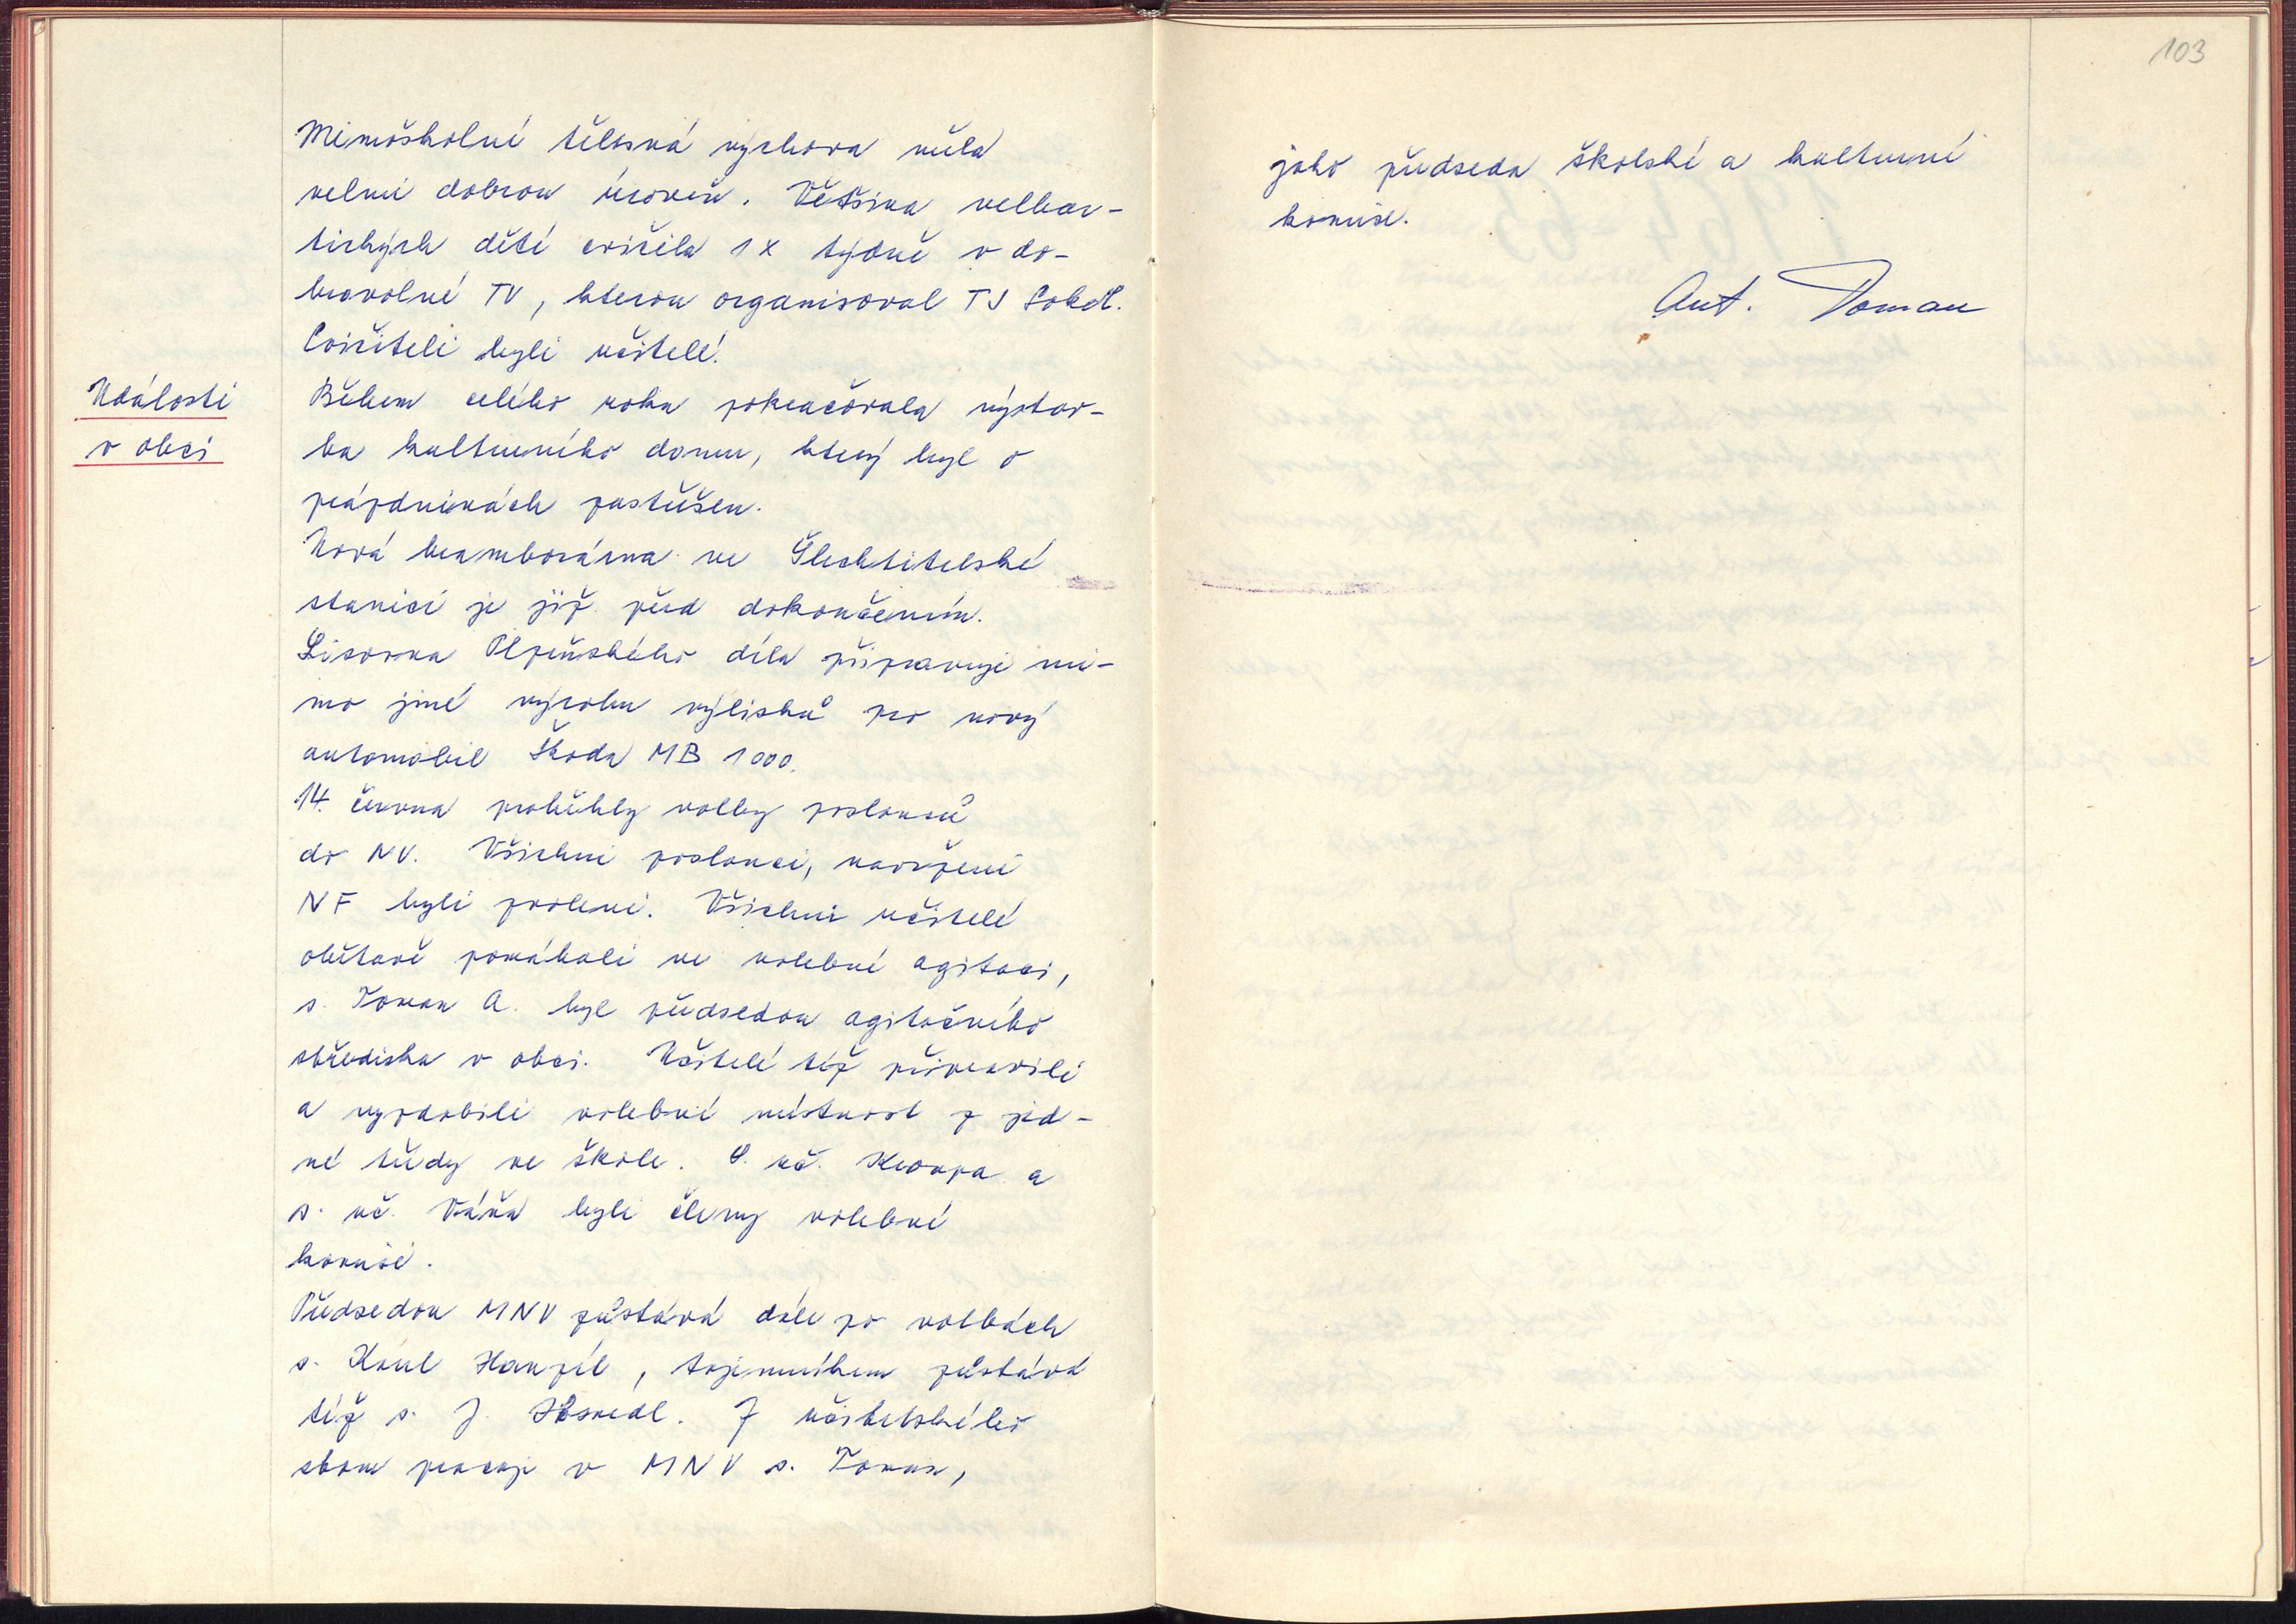 Mimoškolní tělesná výchova měla
velmi dobrou úroveň. Většina velhar-
tických dětí cvičila 1x týdně v do-
brovolné TV, kterou organisoval TJ Sokol.
Cvičiteli byli učitelé.
Události
v obci
Během celého roku pokračovala výstav-
ba kulturního domu, který byl o
prázdninách zastřešen.
Nová bramborárna ve Šlechtitelské
stanici je již před dokončením.
Lisovna Plzeňského díla připravuje mi-
mo jiné výrobu výlisků pro nový
automobil Škoda MB 1000.
14. června proběhly volby poslanců
do NV. Všichni poslanci, navržení
NF byli zvoleni. Všichni učitelé
obětavě pomáhali ve volební agitaci,
s. Toman A. byl předsedou agitačního
střediska v obci. Učitelé též připravili
a vyzdobili volební místnost z jed-
né třídy ve škole. S. uč. Kroupa a
s. uč. Váňa byli členy volební
komise.
Předsedou MNV zůstává dále po volbách
s. Karel Hanzl, tajemníkem zůstává
též s. J. Z učitelského
sboru pracuje v MNV s. Toman,
103
jako předseda školské a kulturní
komise.
Ant. Toman